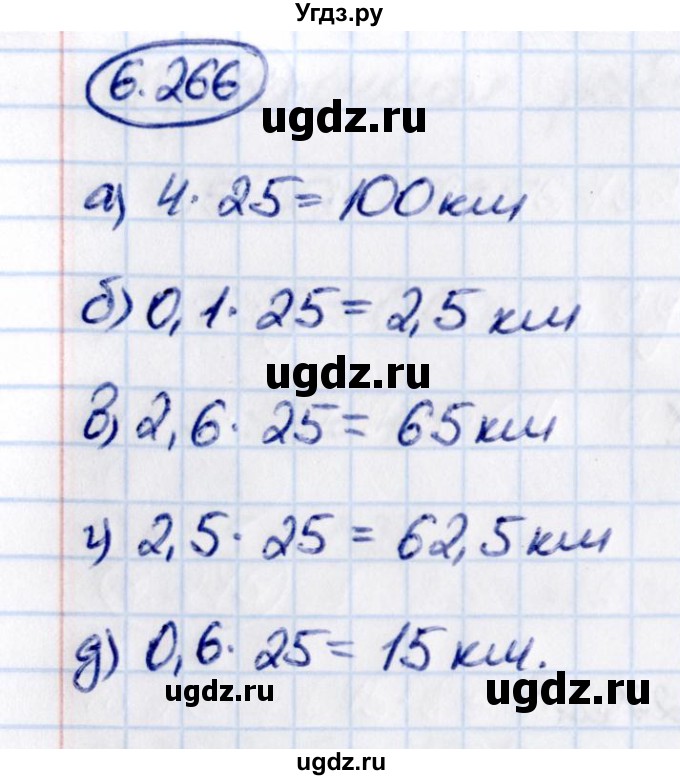 Угдз.ру
6.266
ugdz.ru
а) 4 · 25 = 100 км
б) 0,1 · 25 = 2,5 км
ugdz.ru
в) 2,6 · 25 = 65 км
г) 2,5 · 25 = 62,5 км
д) 0,6 · 25 = 15 км.
ugdz.ru
ugdz.ru
ugdz.ru